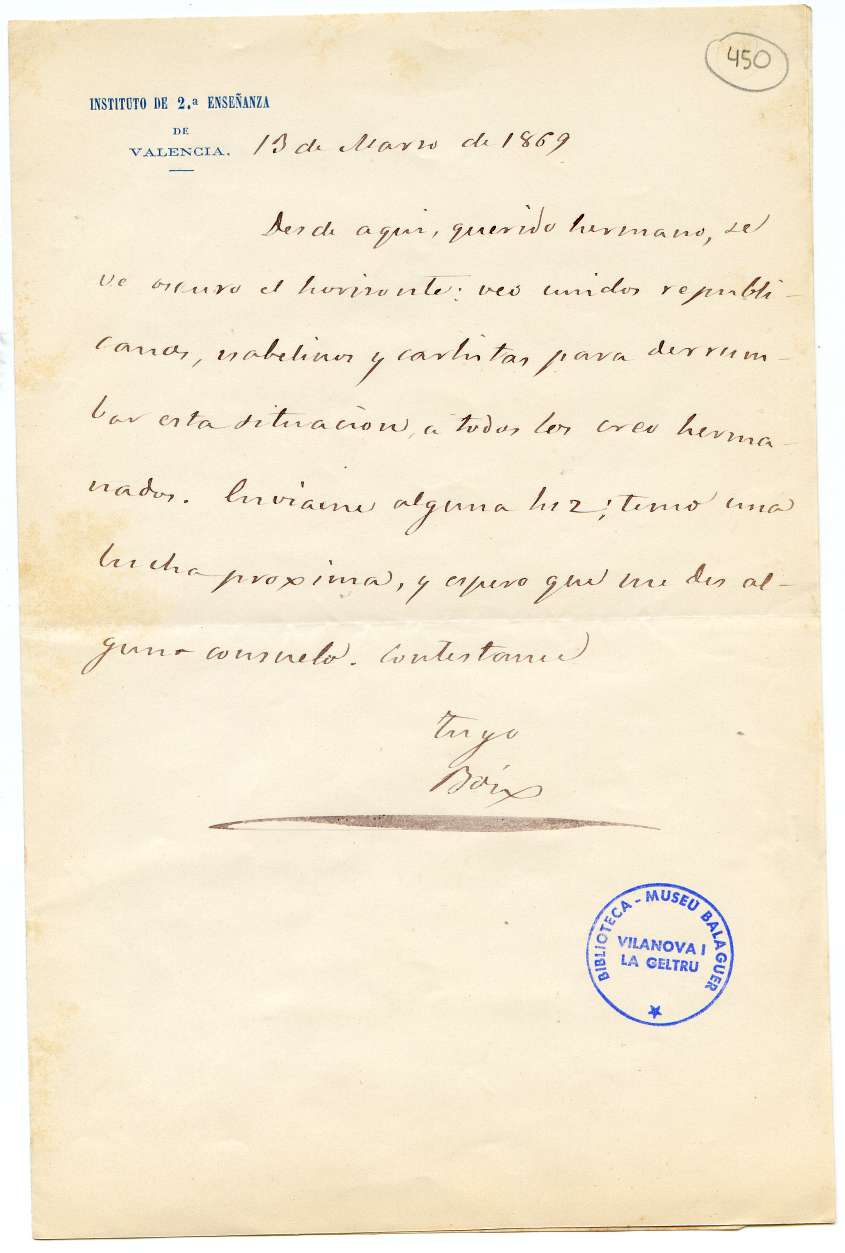 450
INSTITUTO DE 2.ª ENSEÑANZA
DE
VALENCIA. 13 de Marzo de 1869
Desde aqui, querido hermano, se
ve oscuro el horizonte: veo unidos republi-
canos, isabelinos y carlistas para derrum-
bar esta situacion, a todos los creo herma-
nados. Enviame alguna luz; temo una
lucha proxima, y espero que me des al-
gun consuelo. Contestame
Tuyo
Boix
BIBLIOTECA - MUSEU BALAGUER
VILANOVA I
LA GELTRU